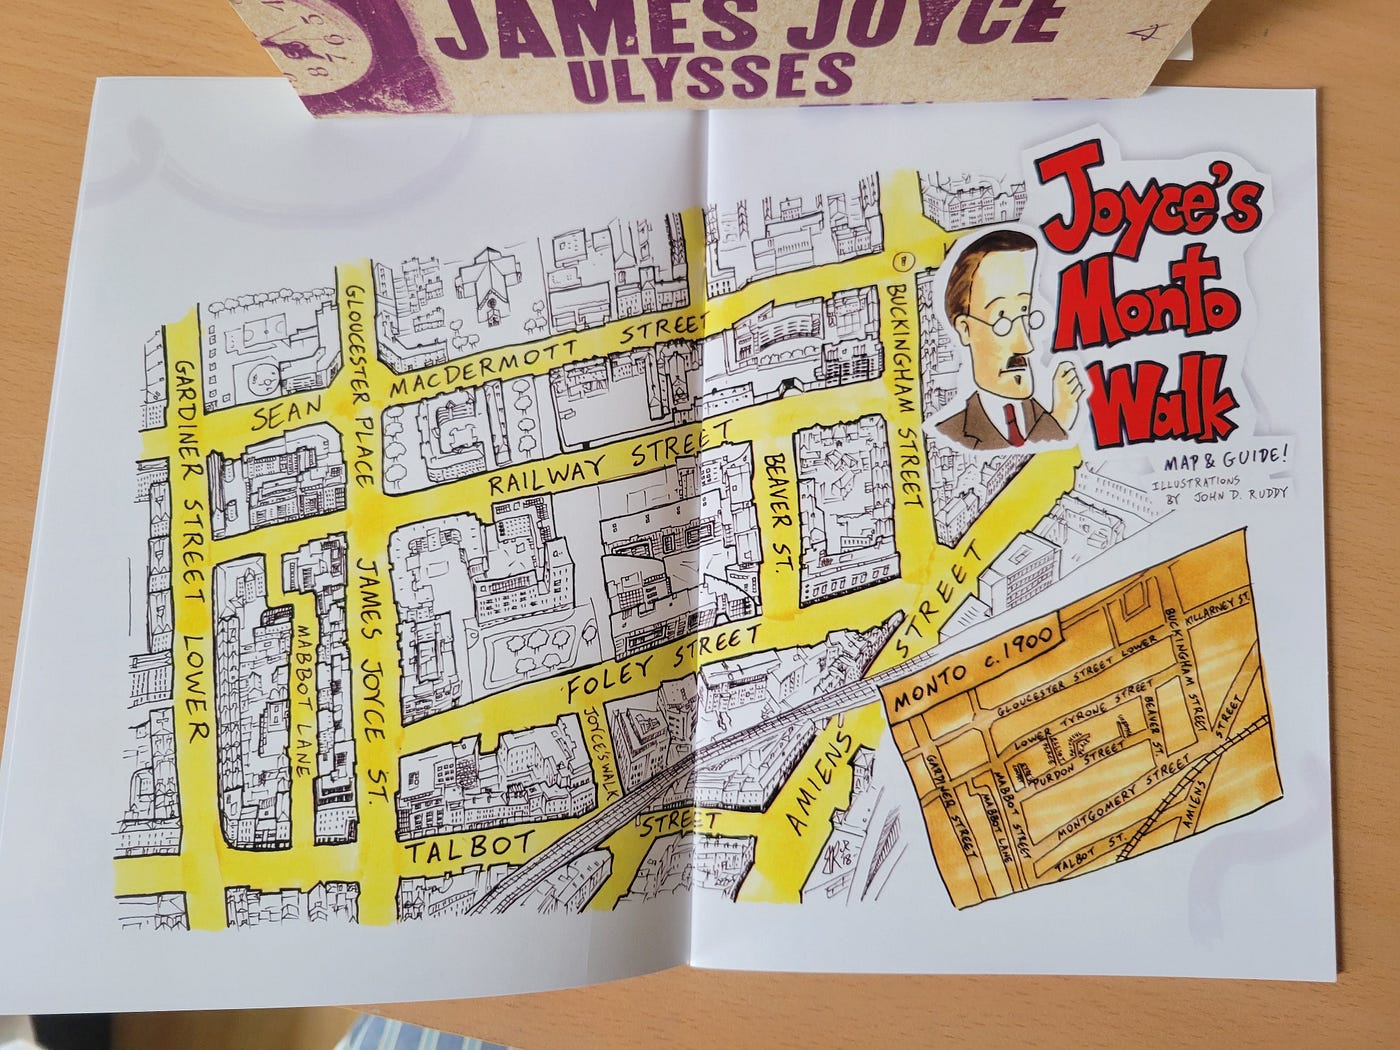 JAMES JOYCE
ULYSSES
Joyce's
Monto
Walk
MAP & GUIDE!
ILLUSTRATIONS
BY JOHN D. RUDDY
GARDINER STREET LOWER
GLOUCESTER PLACE
SEAN MACDERMOTT STREET
BUCKINGHAM STREET
RAILWAY STREET
BEAVER ST.
MABBOT LANE
JAMES JOYCE ST.
FOLEY STREET
JOYCE'S WALK
TALBOT STREET
AMIENS STREET
MONTO c.1900
KILLARNEY ST.
BUCKINGHAM STREET
GLOUCESTER STREET LOWER
LOWER TYRONE STREET
BEAVER ST.
PURDON STREET
GARDINER STREET
MABBOT STREET
MABBOT LANE
MONTGOMERY STREET
TALBOT ST.
AMIENS STREET